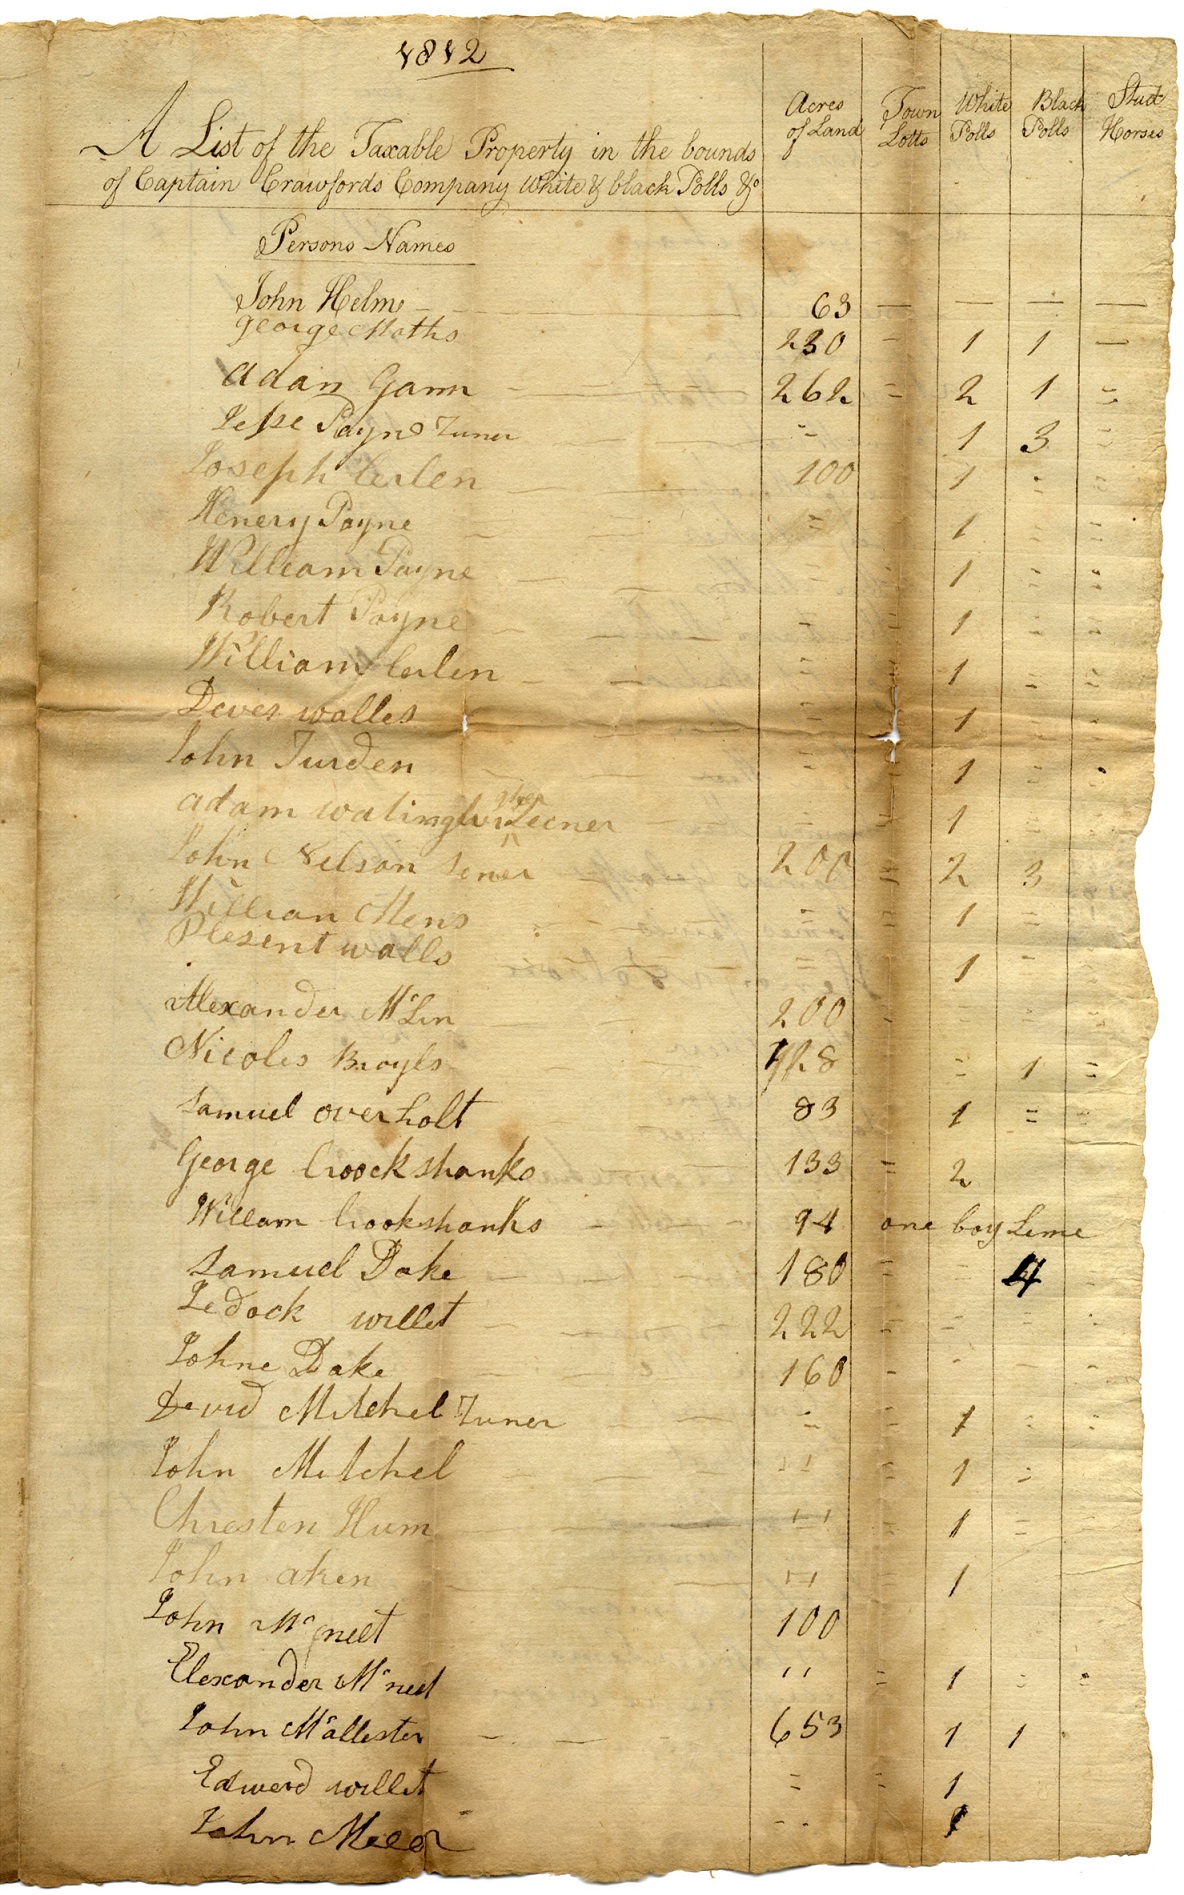 1812
Acres of Land Town Lotts White Polls Black Polls Stud Horses
A List of the Taxable Property in the bounds
of Captain Crawfords Company White & black Polls &c
Persons Names
John Helms — 63 — — — —
George Moths 230 - 1 1 —
Adan Gann — 262 = 2 1 =
Jesse Payne Juner = 1 3 =
Joseph Carlen — 100 1 = =
Henery Payne — = 1 = =
William Payne — = 1 = =
Robert Payne — = 1 = =
William Carlen — = = 1 = =
Deves walles = = 1 = =
John Jurden — = = 1 = -
Adam = 1 =
John Nelson Sener — 200 = 2 3
Willian Mens = = 1 =
Plesent walls = 1 -
Alexander McLin — 200 - = = =
Nicoles Broyls 128 = 1 =
Samuel overholt 83 1 = =
George Croockshanks 133 = 2
Willeam Crookshanks — 94 one boy Lime
Samuel Dake — 180 = 4
Zedock willet — 222 = = = =
Johne Dake 160 - - -
David Mitchel Juner — = = 1 = =
John Mitchel — " = 1 =
Chresten Hum " = 1 = =
John aken — " = 1
John Mcneet 100
Elexander Mcneet " = 1 = =
John Mcallester — 653 1 1 -
Edwerd willet = = 1
John Meler - - 1